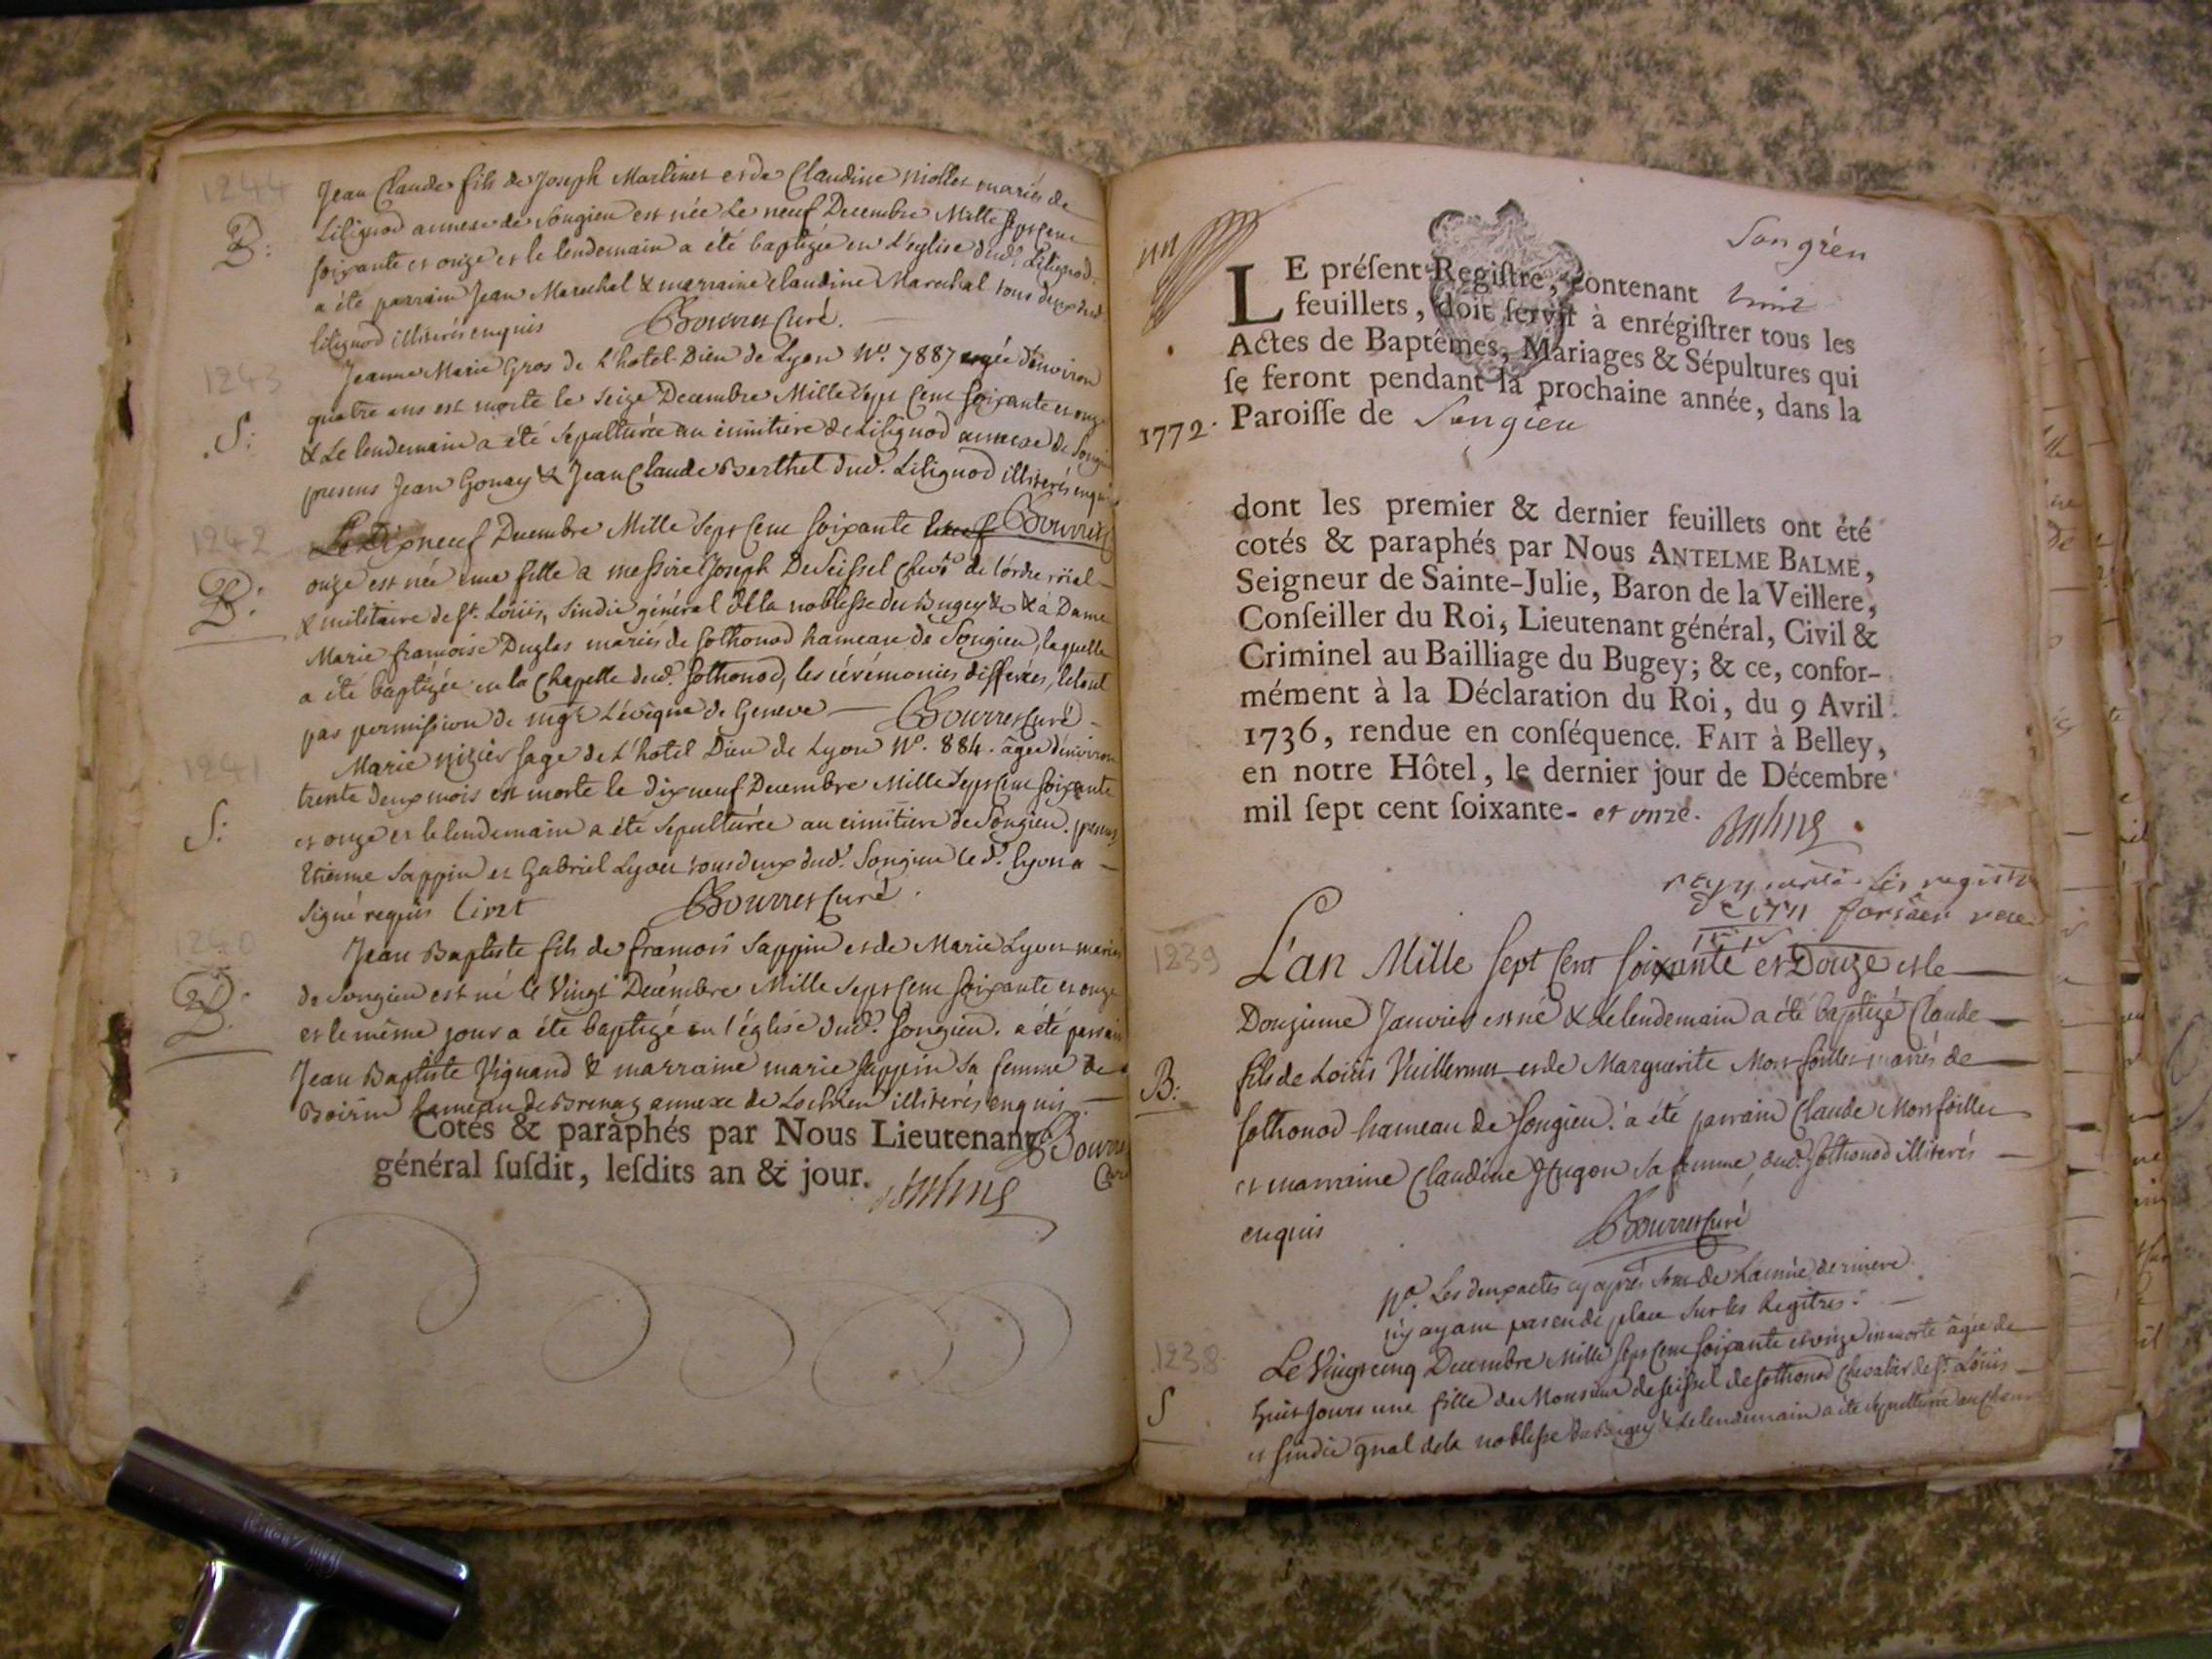 1244
B:
Jean Claude fils de Joseph Martinet et de Claudine Mollet mariés de
Lilignod annexe de Songieu est née Le neuf Decembre Mille sept cent
soixante et onze et le lendemain a été baptizée en L'eglise dud. Lilignod
a été parrain Jean Marechal & marraine Claudine Marechal tous deux dud.
lilignod illiterés enquis Bourret Curé.
1243
S:
Jeanne Marie Gros de L'hotel-Dieu de Lyon N°. 7887 agée d'environ
quatre ans est morte le seize Decembre Mille sept cent soixante et onze
& Le lendemain a été sepulturée au cimitiere de Lilignod annexe de Songieu
presens Jean Gonay & Jean Claude Berthet dud. Lilignod illiterés enquis
Bourret
1242
B:
Le Dixneuf Decembre Mille sept cent soixante
onze est née une fille a messire Joseph De Seissel Chevr de l'ordre röial
& militaire de St. Loüis, sindic général de la noblesse du Bugey & à Dame
Marie francoise Duglas mariés de sothonod hameau de Songieu, laquelle
a été baptizée en la Chapelle dud. sothonod, les cérémonies differées, le tout
par permission de mgr L'évêque de Geneve — Bourret Curé
1241
S:
Marie nizier sage de L'hotel Dieu de Lyon N°. 884. âgée d'environ
trente deux mois est morte le dixneuf Decembre Mille sept cent soixante
et onze et le lendemain a été sepulturée au cimitiere de Songieu. presens
Etienne Sappin et Gabriel Lyvet tous deux dud. Songieu le d. lyvet a
signé requis Livet Bourret Curé.
1240
B.
Jean Baptiste fils de francois Sappin et de Marie Lyvet mariés
de Songieu est né le Vingt Decembre Mille sept cent soixante et onze
et le même jour a été baptizé en l'église dud. Songieu. a été parrain
Jean Baptiste Vignand & marraine marie sappin sa femme de
hameau de Brenaz annexe de Lochieu illiterés enquis
Bourret
Curé
Cotés & paraphés par Nous Lieutenant
général susdit, lesdits an & jour. Balme
Songieu
LE présent Registre, contenant huit
feuillets, doit servir à enrégistrer tous les
Actes de Baptêmes, Mariages & Sépultures qui
se feront pendant la prochaine année, dans la
1772. Paroisse de Songieu
dont les premier & dernier feuillets ont été
cotés & paraphés par Nous ANTELME BALME,
Seigneur de Sainte-Julie, Baron de la Veillere,
Conseiller du Roi, Lieutenant général, Civil &
Criminel au Bailliage du Bugey; & ce, confor-
mément à la Déclaration du Roi, du 9 Avril
1736, rendue en conséquence. FAIT à Belley,
en notre Hôtel, le dernier jour de Décembre
mil sept cent soixante- et onze. Balme
1239
L'an Mille sept Cent soixante et Douze et le
Douzieme Janvier est né & Le lendemain a été baptizé Claude
B:
fils de Loüis Vuillermet et de Marguerite Monfoillet mariés de
sothonod hameau de Songieu. a été parrain Claude Monfoillet
et marraine Claudine Hugon sa femme, dud. Sothonod illiterés
enquis Bourret Curé
Na. Les deux actes cy après sont de L'année derniere
n'y ayant pas eu de place sur les Regitres.
1238
Le Vingt cinq Decembre Mille sept cent soixante et onze est morte âgée de
S
huit Jours une fille de Monsieur de seissel de sothonod Chevalier de St. Loüis
et sindic gnal de la noblesse du Bugey & Le lendemain a été sepulturée au